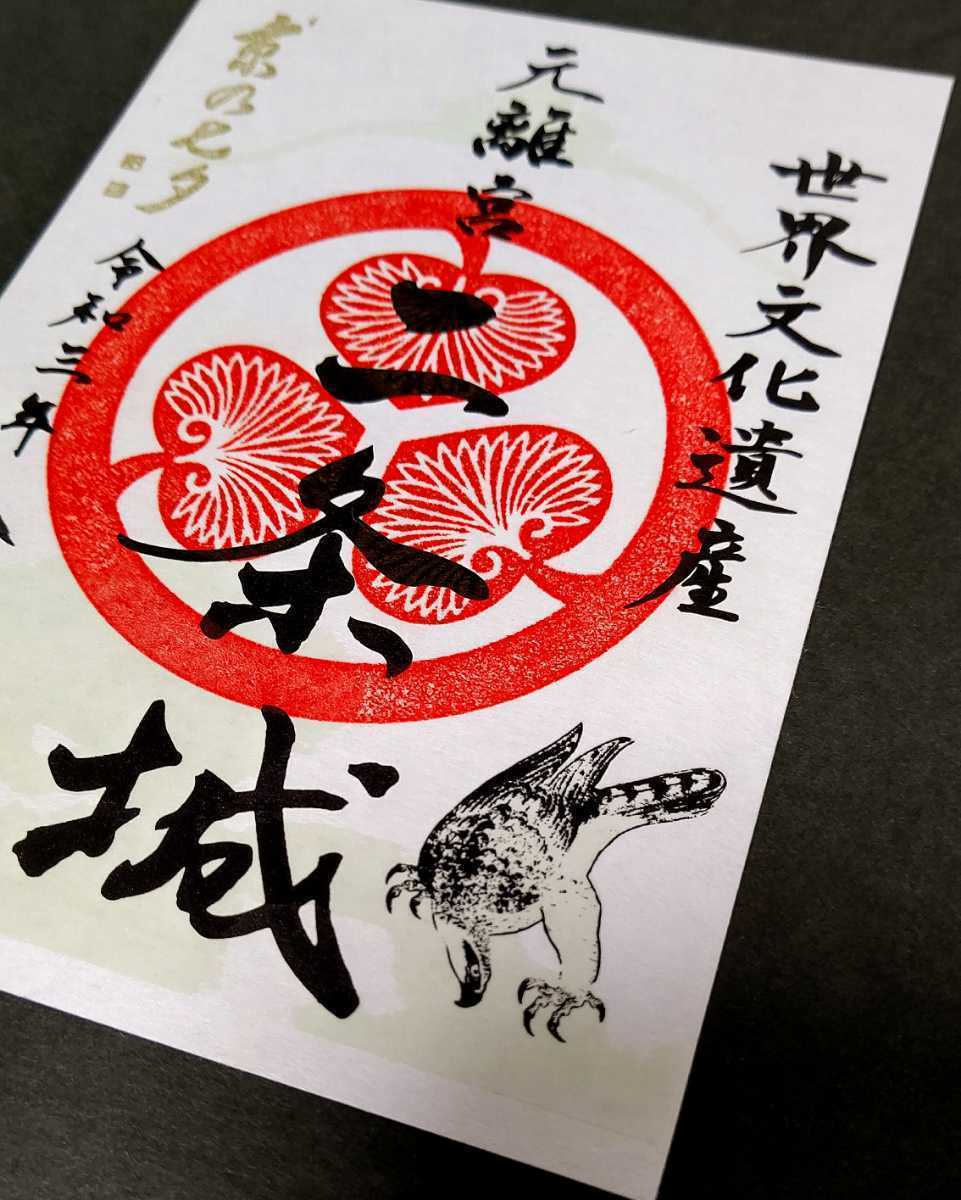 世界文化遺産
元離宮
二条城
京の七夕
令和三年